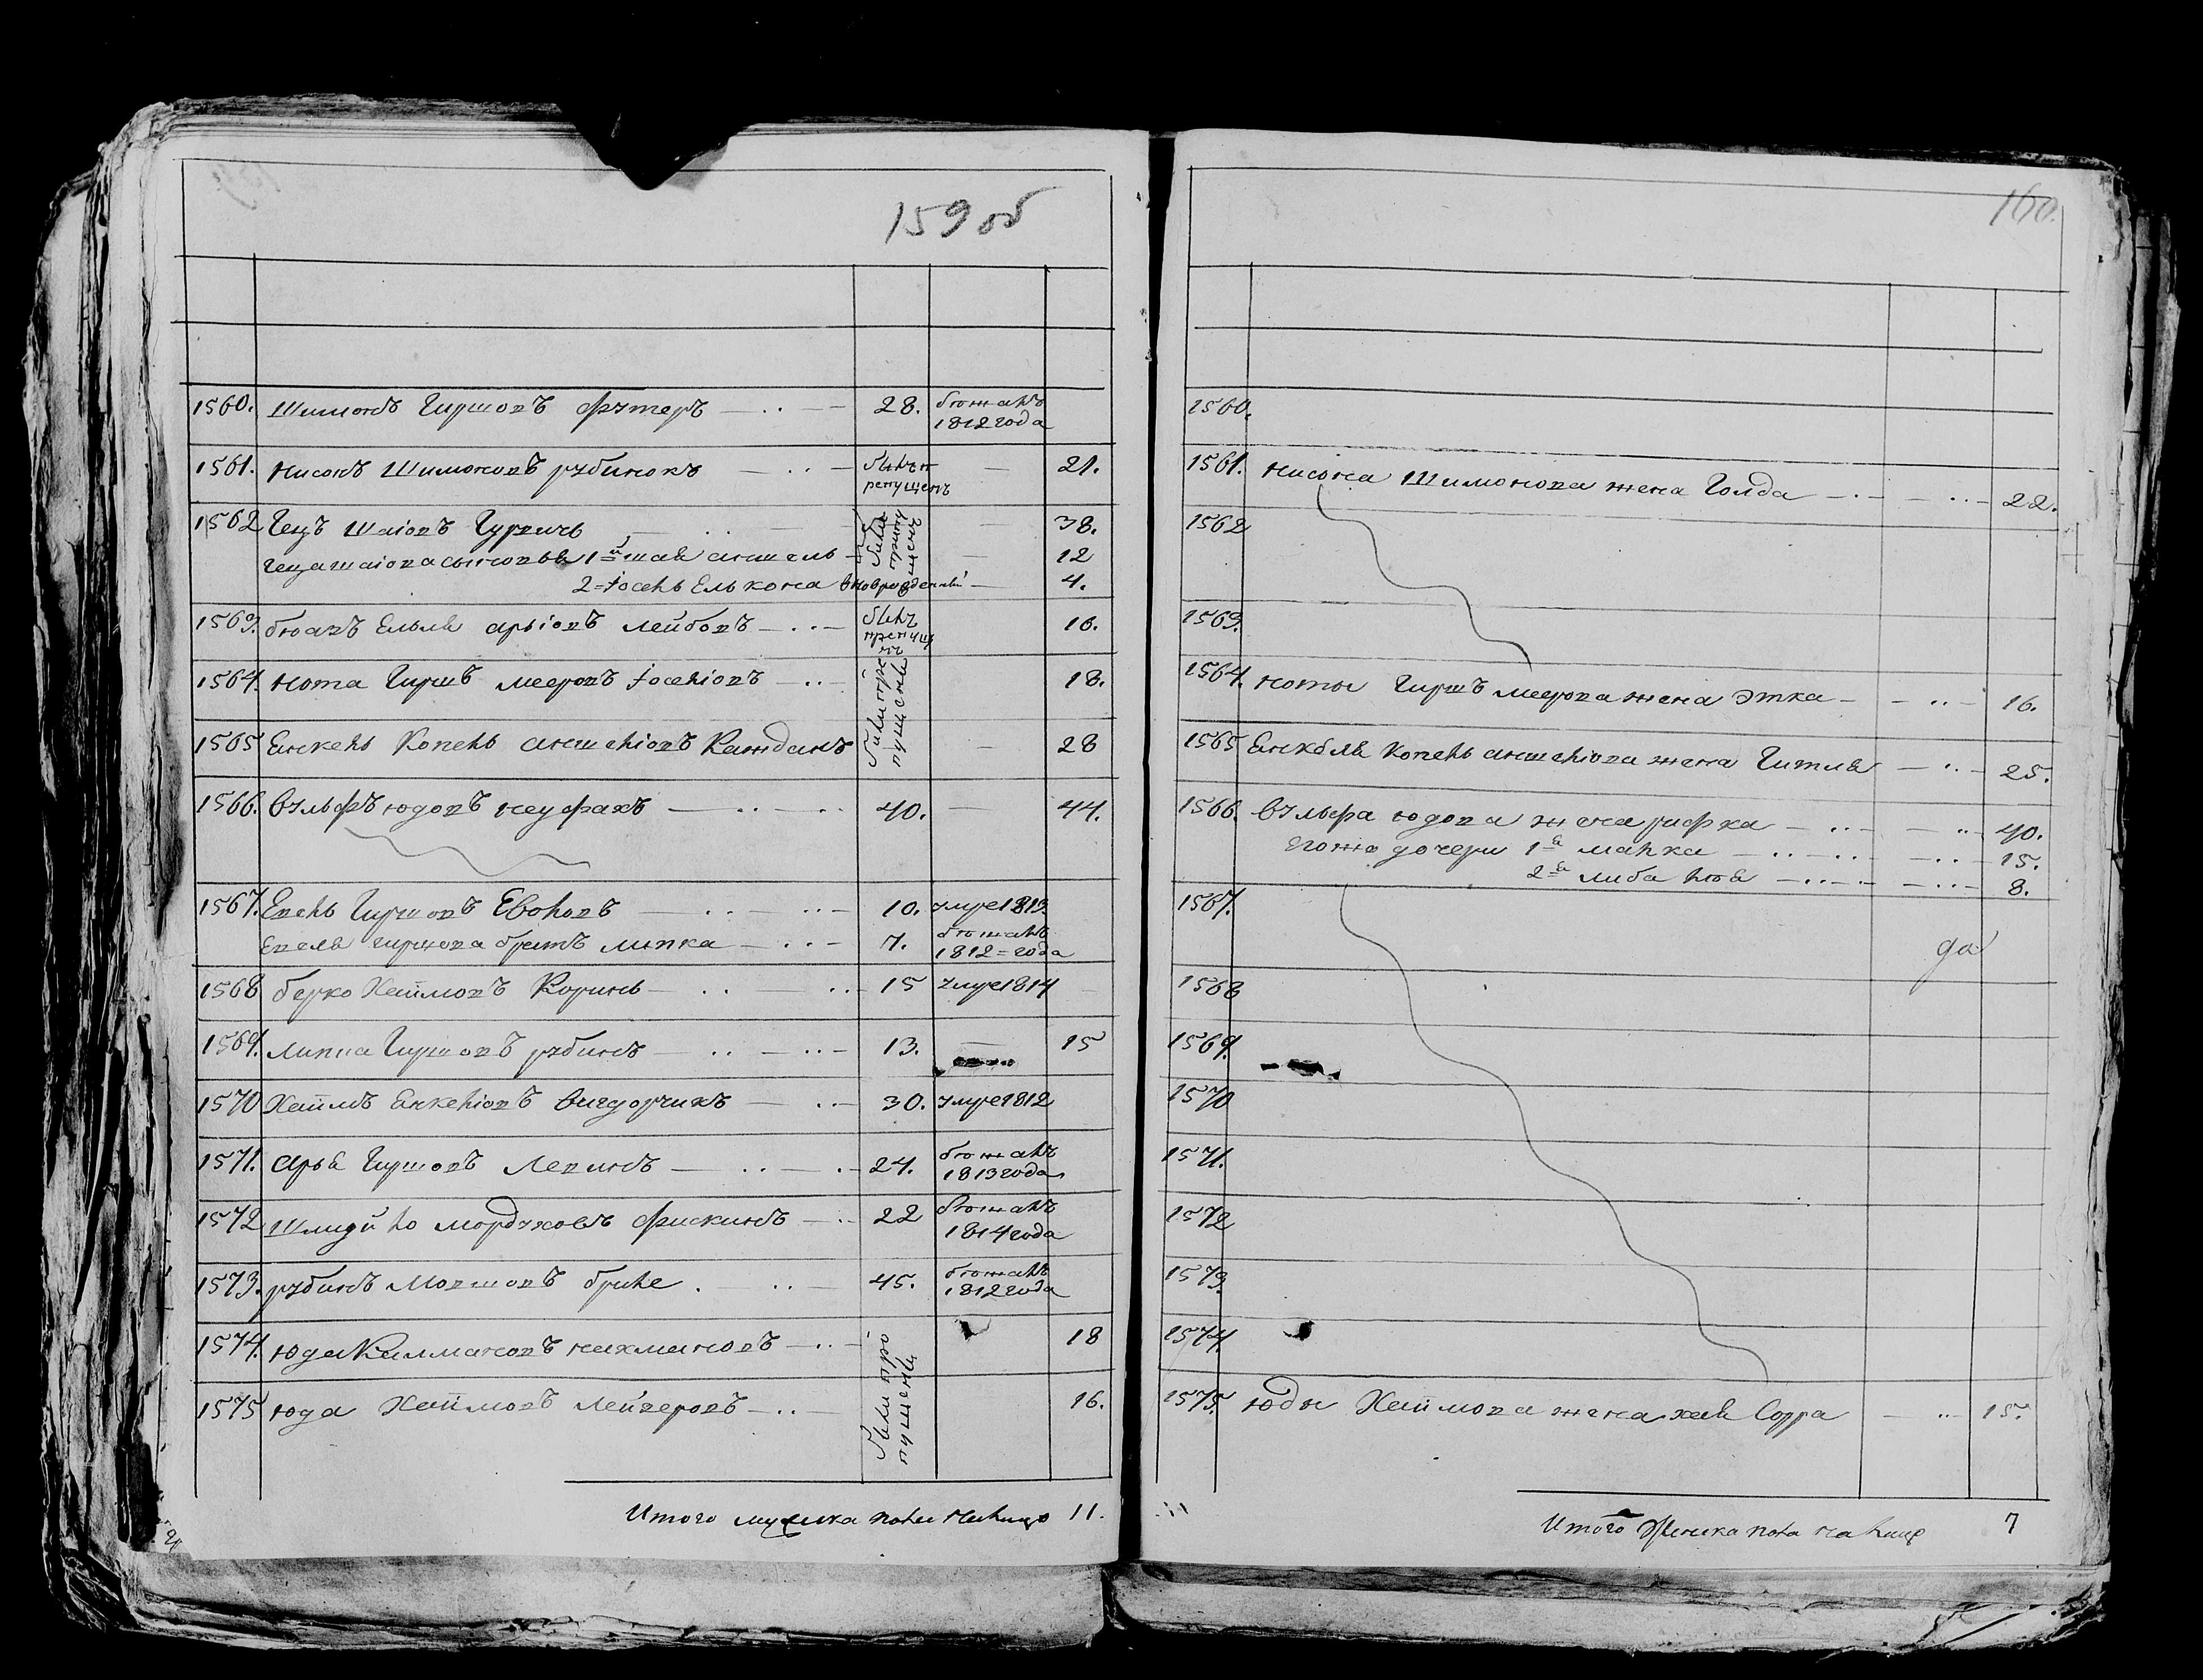 159 об
1560. Шимонъ Гиршовъ Футеръ 28. бежалъ
1812 года
1561. Нисонъ Шимоновъ Рубинокъ былъ п 21.
ропущенъ
1562 Гецъ Шаiовъ Гурвичь 38.
Геца Шаiова сыновья 1й Шая Аншель 12
2 Iосель Елькона вновРожденный 4.
1563. Арьiовъ Лейбовъ былъ 16.
пропущ
нъ
1564. Нота Гиршъ Мееровъ Iоселiовъ 18.
1565 Енкель Копель Аншелiовъ Каждань 28
были про
пущены
1566. Вульфъ Юдовъ Неуфахъ 40. 44.
1567. Евель Гиршовъ 10. умре 1813.
Евеля Гиршова братъ Липка 7. бежалъ
1812 года
1568 Берко Хаймовъ Коринь 15 умре 1814
1569. Липпа Гиршовъ Рубинъ 13. 15
1570 Хаймъ Енкелiовъ Вигдорчикъ 30. умре 1812
1571. Арья Гиршовъ Левинъ 24. бежалъ
1813 года
1572 Мордуховъ Фискинъ 22 бежалъ
1814 года
1573. Рубинъ Мовшовъ 45. бежалъ
1812 года
1574. Юда Калмановъ Нахмановъ 18
1575 Юда Хаймовъ Лейзеровъ 16.
были про
пущены
Итого мужска пола на лицо 11.
160.
1560.
1561. Нисона Шимонова жена Голда 22.
1562
1563.
1564. Ноты Гиршъ Меерова жена Этка 16.
1565 Енкеля Копель Аншелiова жена Гитля 25.
1566. Вульфа Юдова жена Рифка 40.
Егоже дочери 1я Малка 15.
2я Либа 8.
1567.
да
1568
1569.
1570
1571.
1572
1573.
1574.
1575. Юды Хаймова жена Хая Сорра 15.
Итого женска пола на лицо 7